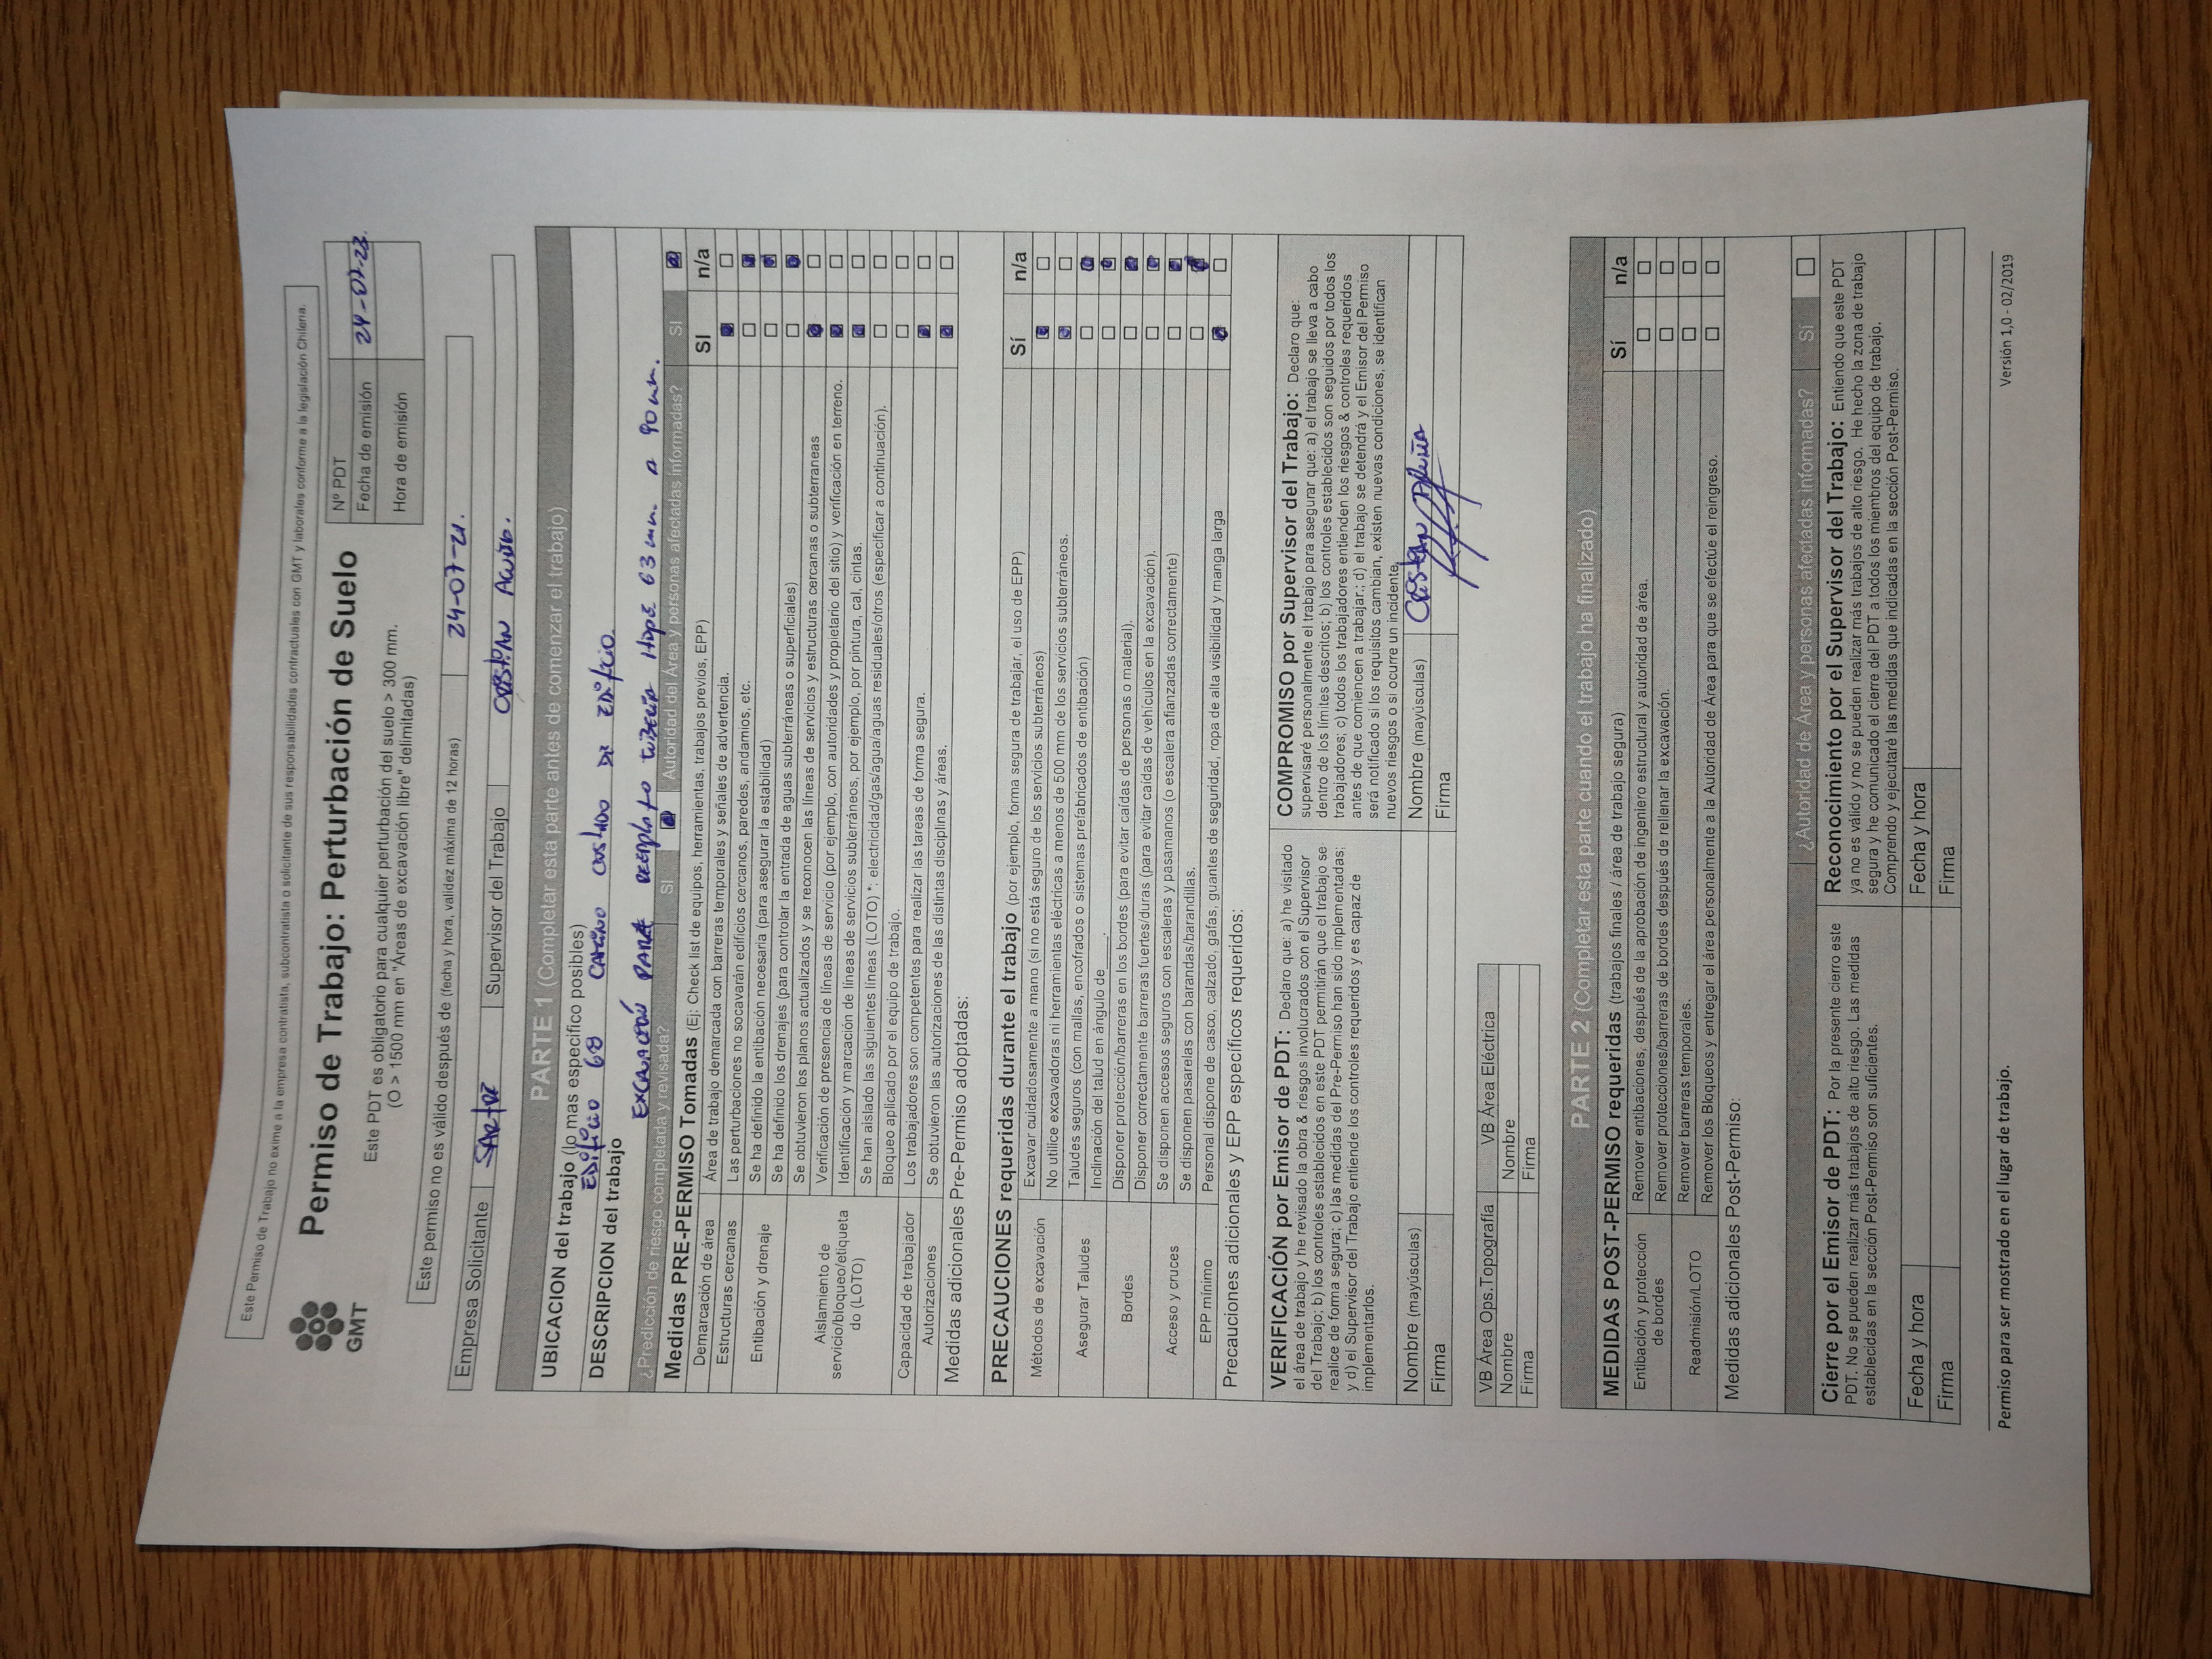 Este Permiso de Trabajo no exime a la empresa contratista, subcontratista o solicitante de sus responsabilidades contractuales con GMT y laborales conforme a la legislación Chilena.
GMT
Permiso de Trabajo: Perturbación de Suelo
Este PDT es obligatorio para cualquier perturbación del suelo > 300 mm.
(O > 1500 mm en "Áreas de excavación libre" delimitadas)
Nº PDT
Fecha de emisión 24-07-23.
Hora de emisión
Este permiso no es válido después de (fecha y hora, validez máxima de 12 horas) 24-07-21.
Empresa Solicitante Supervisor del Trabajo
PARTE 1 (Completar esta parte antes de comenzar el trabajo)
UBICACION del trabajo (lo mas específico posibles)
Edificio 68 Casino costado de Edificio.
DESCRIPCION del trabajo
Excavación para reemplazo tubería Hdpe 63 mm. a 90 mm.
¿Predicción de riesgo completada y revisada? SI Autoridad del Área y personas afectadas informadas? SI
Medidas PRE-PERMISO Tomadas (Ej: Check list de equipos, herramientas, trabajos previos, EPP) SI n/a
Demarcación de área Área de trabajo demarcada con barreras temporales y señales de advertencia.
Estructuras cercanas Las perturbaciones no socavarán edificios cercanos, paredes, andamios, etc.
Entibación y drenaje Se ha definido la entibación necesaria (para asegurar la estabilidad)
Se ha definido los drenajes (para controlar la entrada de aguas subterráneas o superficiales)
Aislamiento de servicio/bloqueo/etiquetado (LOTO) Se obtuvieron los planos actualizados y se reconocen las líneas de servicios y estructuras cercanas o subterraneas
Verificación de presencia de líneas de servicio (por ejemplo, con autoridades y propietario del sitio) y verificación en terreno.
Identificación y marcación de líneas de servicio subterráneos, por ejemplo, por pintura, cal, cintas.
Se han aislado las siguientes líneas (LOTO) *: electricidad/gas/agua/aguas residuales/otros (especificar a continuación).
Bloqueo aplicado por el equipo de trabajo.
Capacidad de trabajador Los trabajadores son competentes para realizar las tareas de forma segura.
Autorizaciones Se obtuvieron las autorizaciones de las distintas disciplinas y áreas.
Medidas adicionales Pre-Permiso adoptadas:
PRECAUCIONES requeridas durante el trabajo (por ejemplo, forma segura de trabajar, el uso de EPP) Sí n/a
Métodos de excavación Excavar cuidadosamente a mano (si no está seguro de los servicios subterráneos)
No utilice excavadoras ni herramientas eléctricas a menos de 500 mm de los servicios subterráneos.
Asegurar Taludes Taludes seguros (con mallas, encofrados o sistemas prefabricados de entibación)
Inclinación del talud en ángulo de ______.
Bordes Disponer protección/barreras en los bordes (para evitar caídas de personas o material).
Disponer correctamente barreras fuertes/duras (para evitar caídas de vehículos en la excavación).
Acceso y cruces Se disponen accesos seguros con escaleras y pasamanos (o escalera afianzadas correctamente)
Se disponen pasarelas con barandas/barandillas.
EPP mínimo Personal dispone de casco, calzado, gafas, guantes de seguridad, ropa de alta visibilidad y manga larga
Precauciones adicionales y EPP específicos requeridos:
VERIFICACIÓN por Emisor de PDT: Declaro que: a) he visitado
el área de trabajo y he revisado la obra & riesgos involucrados con el Supervisor
del Trabajo; b) los controles establecidos en este PDT permitirán que el trabajo se
realice de forma segura; c) las medidas del Pre-Permiso han sido implementadas;
y d) el Supervisor del Trabajo entiende los controles requeridos y es capaz de
implementarlos.
Nombre (mayúsculas)
Firma
COMPROMISO por Supervisor del Trabajo: Declaro que:
supervisaré personalmente el trabajo para asegurar que: a) el trabajo se lleva a cabo
dentro de los límites descritos; b) los controles establecidos son seguidos por todos los
trabajadores; c) todos los trabajadores entienden los riesgos & controles requeridos
antes de que comiencen a trabajar; d) el trabajo se detendrá y el Emisor del Permiso
será notificado si los requisitos cambian, existen nuevas condiciones, se identifican
nuevos riesgos o si ocurre un incidente.
Nombre (mayúsculas)
Firma
VB Área Ops.Topografía VB Área Eléctrica
Nombre Nombre
Firma Firma
PARTE 2 (Completar esta parte cuando el trabajo ha finalizado)
MEDIDAS POST-PERMISO requeridas (trabajos finales / área de trabajo segura) Sí n/a
Entibación y protección de bordes Remover entibaciones, después de la aprobación de ingeniero estructural y autoridad de área.
Remover protecciones/barreras de bordes después de rellenar la excavación.
Readmisión/LOTO Remover barreras temporales.
Remover los Bloqueos y entregar el área personalmente a la Autoridad de Área para que se efectúe el reingreso.
Medidas adicionales Post-Permiso:
¿Autoridad de Área y personas afectadas informadas? Sí
Cierre por el Emisor de PDT: Por la presente cierro este
PDT. No se pueden realizar más trabajos de alto riesgo. Las medidas
establecidas en la sección Post-Permiso son suficientes.
Fecha y hora
Firma
Reconocimiento por el Supervisor del Trabajo: Entiendo que este PDT
ya no es válido y no se pueden realizar más trabajos de alto riesgo. He hecho la zona de trabajo
segura y he comunicado el cierre del PDT a todos los miembros del equipo de trabajo.
Comprendo y ejecutaré las medidas que indicadas en la sección Post-Permiso.
Fecha y hora
Firma
Permiso para ser mostrado en el lugar de trabajo.
Versión 1,0 - 02/2019